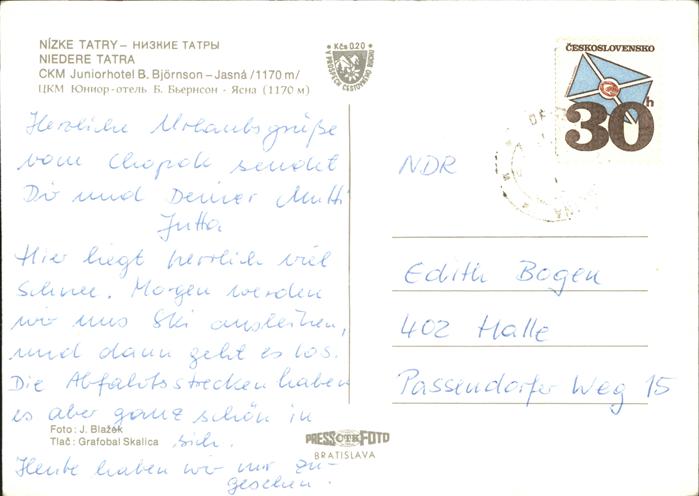 NÍZKE TATRY – НИЗКИЕ ТАТРЫ
NIEDERE TATRA
CKM Juniorhotel B. Björnson – Jasná /1170 m/
ЦКМ Юниор-отель Б. Бьернсон - Ясна (1170 м)
Kčs 0.20
V PROSPECH CESTOVNÉHO RUCHU
ČESKOSLOVENSKO
30 h
Herzliche Urlaubsgrüße
vom Chopok sendet
Dir und Deiner Mutti
Jutta
Hier liegt herrlich viel
Schnee. Morgen werden
wir uns Ski ausleihen,
und dann geht es los.
Die Abfahrtsstrecken haben
es aber ganz schön in
sich.
Heute haben wir nur zu-
gesehen.
NDR
Edith Bogen
402 Halle
Passendorfer Weg 15
Foto: J. Blažek
Tlač: Grafobal Skalica
PRESS ČTK FOTO
BRATISLAVA